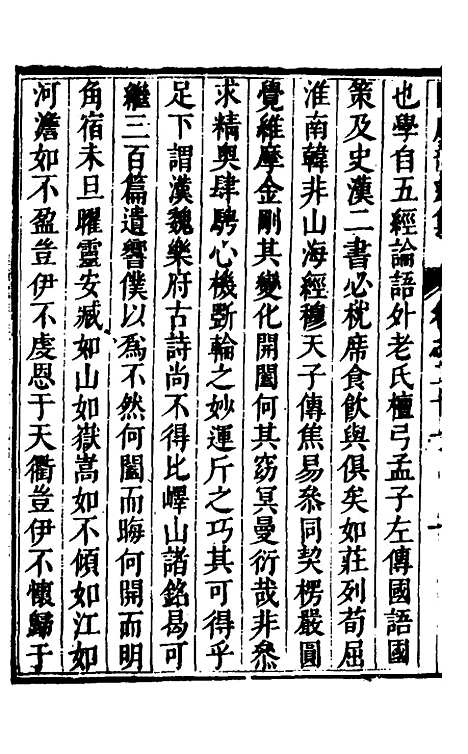 也學自五經論語外老氏檀弓孟子左傳國語國
策及史漢二書必枕席食飲與俱矣如莊列荀屈
淮南韓非山海經穆天子傳焦易叅同契楞嚴圓
覺維摩金剛其變化開闔何其窈冥曼衍哉非叅
求精奥肆騁心機斲輪之妙運斤之巧其可得乎
足下謂漢魏樂府古詩尚不得比嶧山諸銘曷可
繼三百篇遺響僕以為不然何闔而晦何開而明
角宿未旦曜靈安臧如山如嶽嵩如不傾如江如
河澹如不盈豈伊不虔恩于天衢豈伊不懷歸于